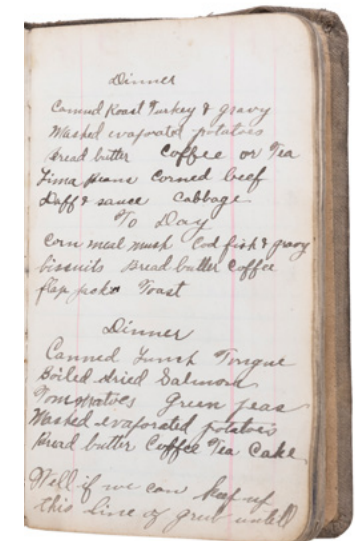 Dinner
Canned Roast Turkey & gravy
Mashed evaporated potatoes
Bread butter Coffee or Tea
Lima Beans Corned beef
Duff & sauce Cabbage
To Day
Corn meal mush Cod fish & gravy
biscuits Bread butter Coffee
flap jacks Toast
Dinner
Canned Lunch Tongue
Boiled dried Salmon
Tommatoes Green peas
Mashed evaporated potatoes
Bread butter Coffee Tea Cake
Well if we can keep up
this line of grub untill